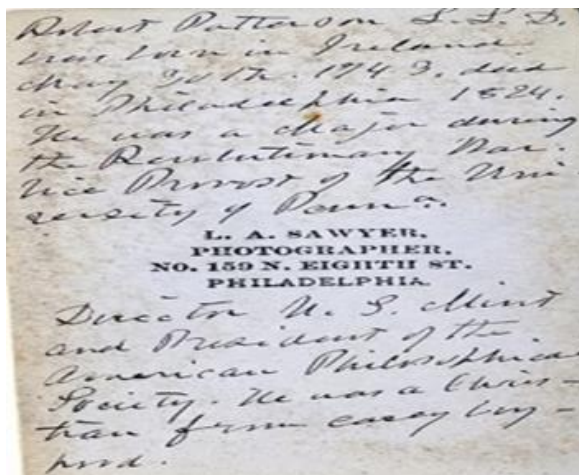 Robert Patterson L.L.D.
was born in Ireland
May 30th. 1743, died
in Philadelphia 1824.
He was a Major during
the Revolutionary War.
Vice Provost of the Uni
versity of Penna.
L. A. SAWYER,
PHOTOGRAPHER,
NO. 159 N. EIGHTH ST.
PHILADELPHIA.
Director U. S. Mint
and President of the
American Philosophical
Society. He was a Chris-
tian from early boy-
hood.